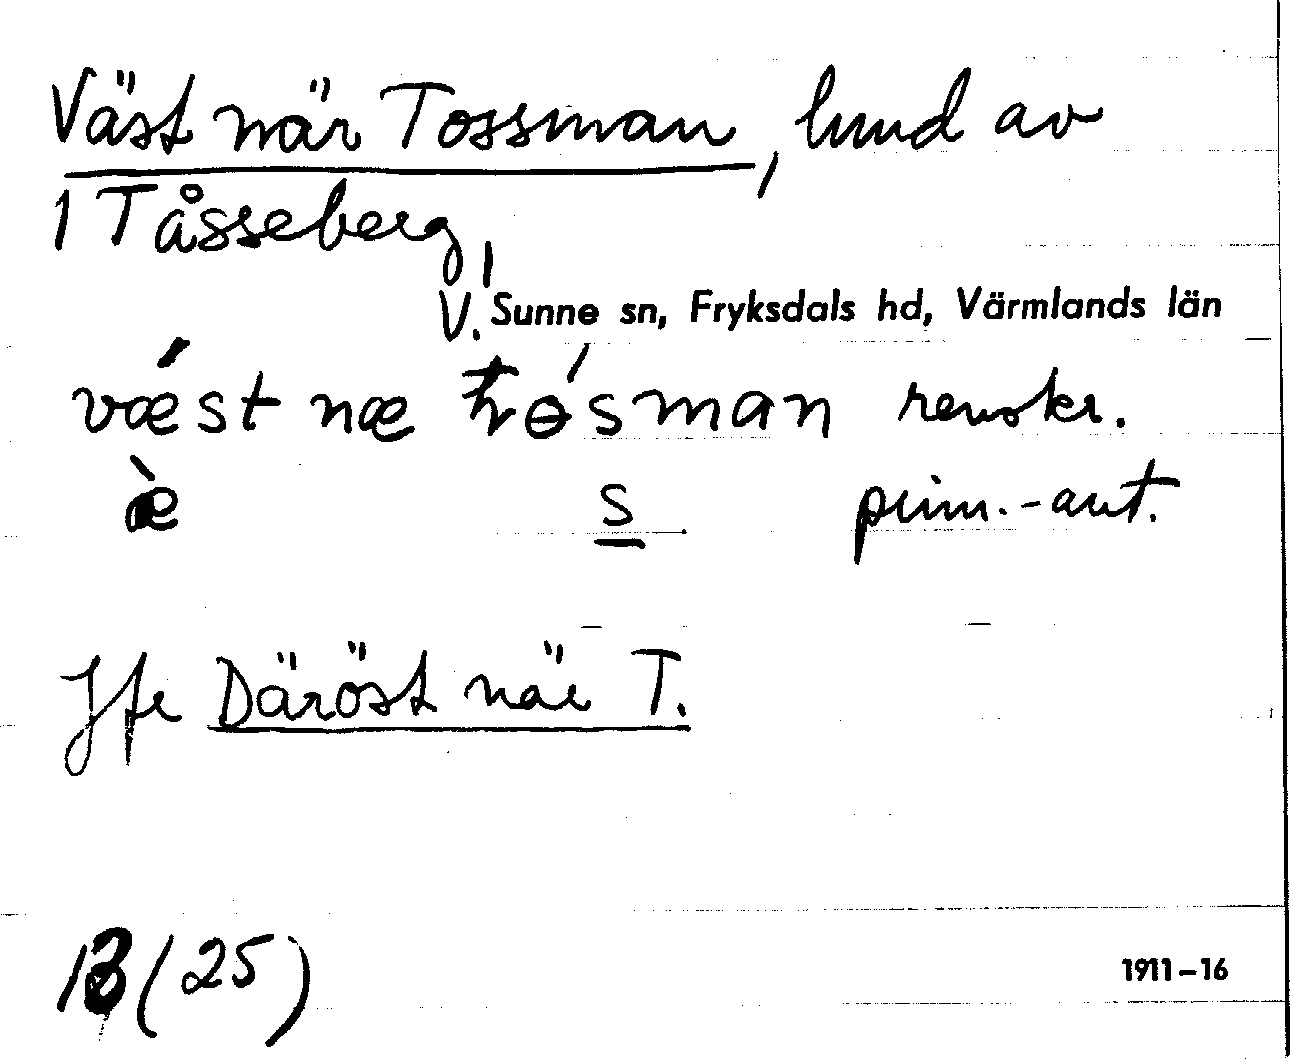 Väst när Tossman, lund av
1 Tåsseberg,
V. Sunne sn, Fryksdals hd, Värmlands län
vǽst næ tɵ́sman renskr.
æ̀ s prim.-ant.
Jfr Däröst när T.
13 (25)
1911-16